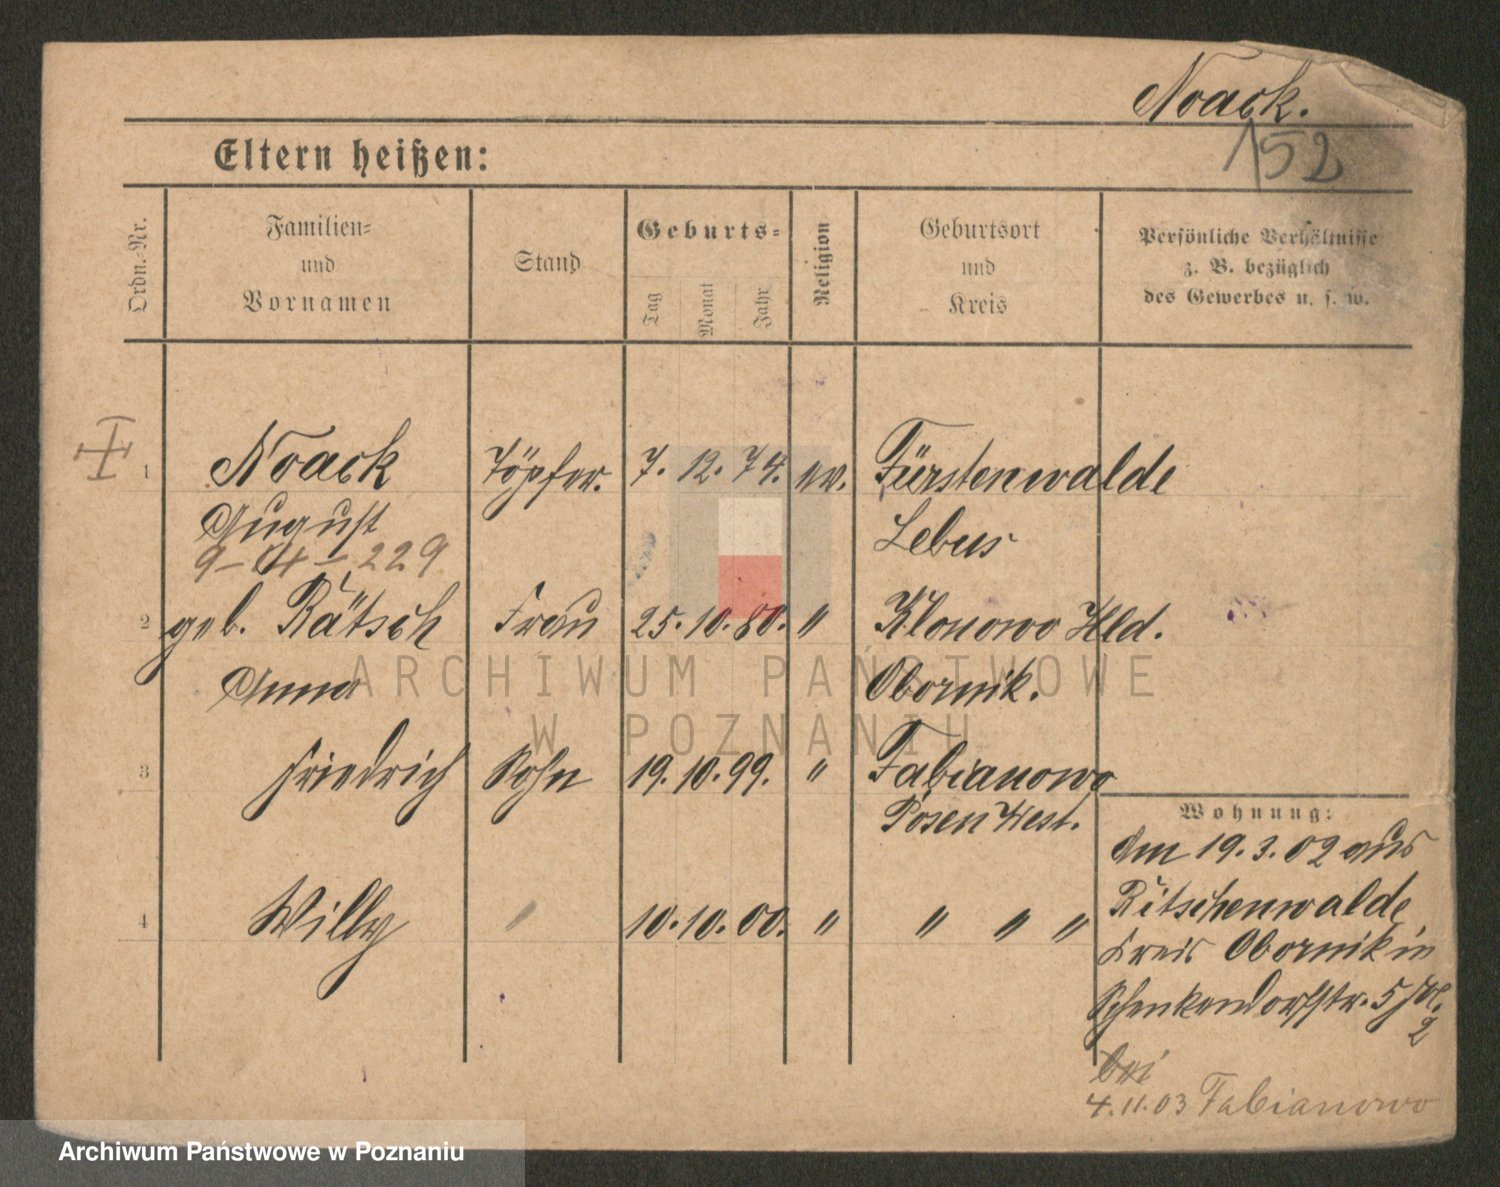 Noack.
152
Eltern heißen:
Ordn.-Nr.
Familien-
und
Vornamen
Stand
Geburts-
Tag
Monat
Jahr
Religion
Geburtsort
und
Kreis
Persönliche Verhältnisse
z. B. bezüglich
des Gewerbes u. s. w.
1 Noack Töpfer. 7. 12. 74. ev. Fürstenwalde
August Lebus
9-14-229
2 geb. Rätsch Frau 25. 10. 80. " Klonowo Hld.
Anna Obornik.
3 Friedrich Sohn 19. 10. 99. " Fabianowo
Posen West.
4 Willy " 10. 10. 00. " " " "
Wohnung:
Am 19. 3. 02 aus
Ritschenwalde
Kreis Obornik in
Schenkendorfstr. 5
2
bei
4. 11. 03 Fabianowo
ARCHIWUM PAŃSTWOWE
W POZNANIU
Archiwum Państwowe w Poznaniu